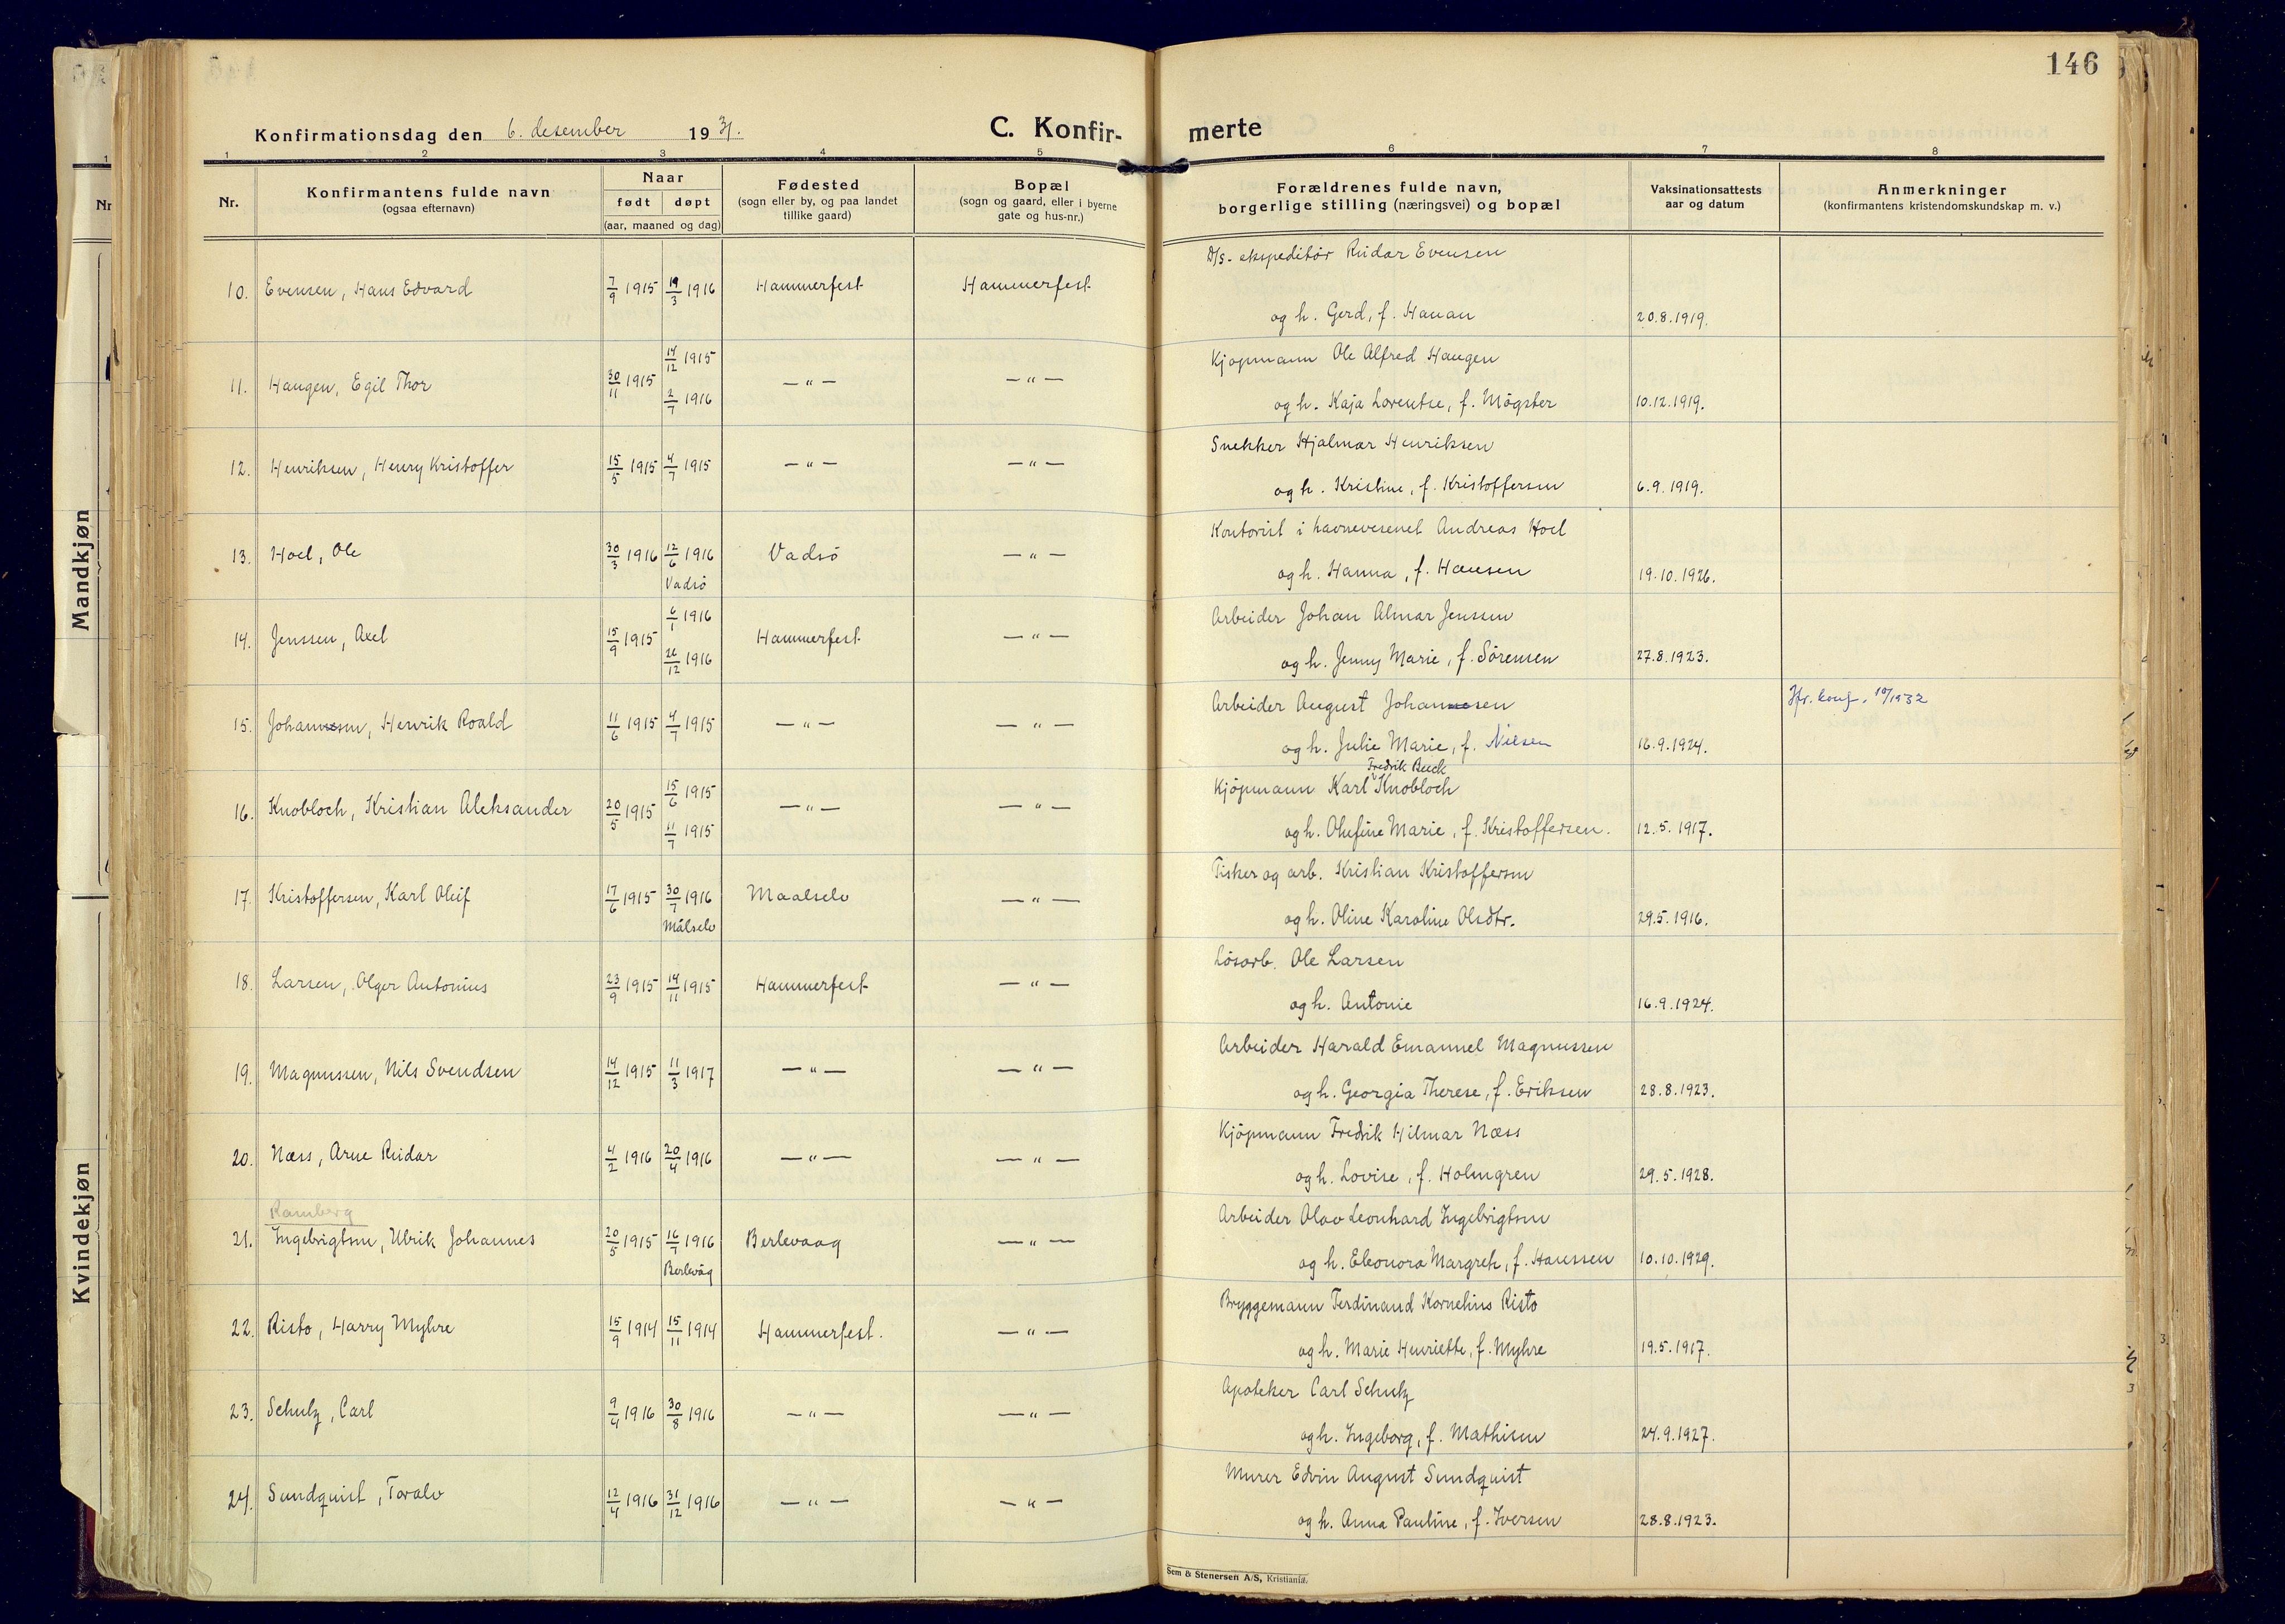 146
Konfirmationsdag den 6. desember 1931.
C. Konfir-
merte
1 2 3 4 5 6 7 8
Nr.
Konfirmantens fulde navn
(ogsaa efternavn)
Naar
født døpt
(aar, maaned og dag)
Fødested
(sogn eller by, og paa landet
tillike gaard)
Bopæl
(sogn og gaard, eller i byerne
gate og hus-nr.)
Forældrenes fulde navn,
borgerlige stilling (næringsvei) og bopæl
Vaksinationsattests
aar og datum
Anmerkninger
(konfirmantens kristendomskundskap m. v.)
Mandkjøn
Kvindekjøn
D/s-ekspeditör Reidar Evensen
10. Evensen, Hans Edvard 7/9 1915 19/3 1916 Hammerfest Hammerfest
og h. Gerd, f. Hauan 20.8.1919.
14/12 1915 Kjöpmann Ole Alfred Haugen
11. Haugen, Egil Thor 30/11 1915 — " — — " —
2/7 1916 og h. Kaja Lorentse, f. Mögster 10.12.1919.
Snekker Hjalmar Henriksen
12. Henriksen, Henry Kristoffer 15/5 1915 4/7 1915 — " — — " —
og h. Kristine, f. Kristoffersen 6.9.1919.
Kontorist i havnevesenet Andreas Hoel
13. Hoel, Ole 30/3 1916 12/6 1916 Vadsö — " —
Vadsö og h. Hanna, f. Hansen 19.10.1926.
6/1 1916 Arbeider Johan Almar Jenssen
14. Jenssen, Axel 15/9 1915 Hammerfest — " —
26/12 1916 og h. Jenny Marie, f. Sörensen 27.8.1923.
Arbeider August Johannesen
15. Johannesen, Henrik Roald 11/6 1915 4/7 1915 — " — — " —
og h. Julie Marie, f. Nilsen 16.9.1924.
Fredrik Buck
15/6 1915 Kjöpmann Karl Knobloch
16. Knobloch, Kristian Aleksander 20/5 1915 — " — — " —
11/7 1915 og h. Olufine Marie, f. Kristoffersen. 12.5.1917.
Fisker og arb. Kristian Kristoffersen
17. Kristoffersen, Karl Oleif 17/6 1915 30/7 1916 Maalselv — " —
Målselv og h. Oline Karoline Olsdtr. 29.5.1916.
Lösarb. Ole Larsen
18. Larsen, Olger Antonius 23/9 1915 14/11 1915 Hammerfest — " —
og h. Antonie 16.9.1924.
Arbeider Harald Emanuel Magnussen
19. Magnussen, Nils Svendsen 14/12 1915 11/3 1917 — " — — " —
og h. Georgia Therese, f. Eriksen 28.8.1923.
Kjöpmann Fredrik Hilmar Næss
20. Næss, Arne Reidar 4/2 1916 20/4 1916 — " — — " —
og h. Lovise, f. Holmgren 29.5.1928.
Ramberg
Arbeider Olav Leonhard Ingebrigtsen
21. Ingebrigtsen, Ulrik Johannes 20/5 1915 16/7 1916 Berlevaag — " —
Berlevåg og h. Eleonora Margreth, f. Hanssen 10.10.1929.
Bryggemann Ferdinand Kornelius Risto
22. Risto, Harry Myhre 15/9 1914 15/11 1914 Hammerfest. — " —
og h. Marie Henriette, f. Myhre 19.5.1917.
Apoteker Carl Schulz
23. Schulz, Carl 9/4 1916 30/8 1916 — " — — " —
og h. Ingeborg, f. Mathisen 24.9.1927.
Murer Edvin August Sundquist
24. Sundquist, Toralv 12/4 1916 31/12 1916 — " — — " —
og h. Anna Pauline, f. Iversen 28.8.1923.
Sem & Stenersen A/S, Kristiania.